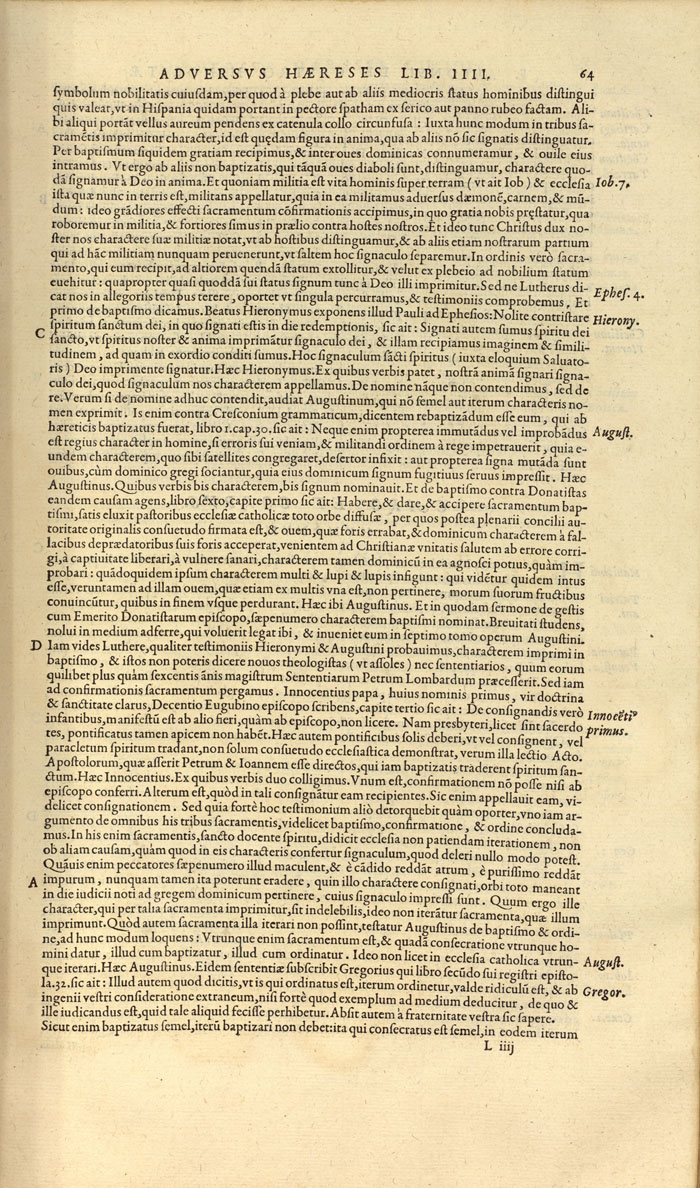 ADVERSVS HÆRESES LIB. IIII. 64
symbolum nobilitatis cuiusdam, per quod à plebe aut ab aliis mediocris status hominibus distingui
quis valeat, vt in Hispania quidam portant in pectore spatham ex serico aut panno rubeo factam. Ali-
bi aliqui portāt vellus aureum pendens ex catenula collo circunfusa : Iuxta hunc modum in tribus sa-
cramētis imprimitur character, id est quędam figura in anima, qua ab aliis nō sic signatis distinguatur.
Per baptismum siquidem gratiam recipimus, & inter oues dominicas connumeramur, & ouile eius
intramus. Vt ergo ab aliis non baptizatis, qui tāquā oues diaboli sunt, distinguamur, charactere quo-
dā signamur à Deo in anima. Et quoniam militia est vita hominis super terram ( vt ait Iob ) & ecclesia Iob. 7.
ista quæ nunc in terris est, militans appellatur, quia in ea militamus aduersus dæmonē, carnem, & mū-
dum : ideo grādiores effecti sacramentum cōfirmationis accipimus, in quo gratia nobis pręstatur, qua
roboremur in militia, & fortiores simus in prælio contra hostes nostros. Et ideo tunc Christus dux no-
ster nos charactere suæ militiæ notat, vt ab hostibus distinguamur, & ab aliis etiam nostrarum partium
qui ad hāc militiam nunquam peruenerunt, vt saltem hoc signaculo separemur. In ordinis verò sacra-
mento, qui eum recipit, ad altiorem quendā statum extollitur, & velut ex plebeio ad nobilium statum
euehitur : quapropter quasi quoddā sui status signum tunc à Deo illi imprimitur. Sed ne Lutherus di-
cat nos in allegoriis tempus terere, oportet vt singula percurramus, & testimoniis comprobemus. Et Ephes. 4.
primo de baptismo dicamus. Beatus Hieronymus exponens illud Pauli ad Ephesios: Nolite contristare Hierony.
C spiritum sanctum dei, in quo signati estis in die redemptionis, sic ait : Signati autem sumus spiritu dei
sancto, vt spiritus noster & anima imprimātur signaculo dei, & illam recipiamus imaginem & simili-
tudinem, ad quam in exordio conditi sumus. Hoc signaculum sācti spiritus ( iuxta eloquium Saluato-
ris ) Deo imprimente signatur. Hæc Hieronymus. Ex quibus verbis patet, nostrā animā signari signa-
culo dei, quod signaculum nos characterem appellamus. De nomine nāque non contendimus, sed de
re. Verum si de nomine adhuc contendit, audiat Augustinum, qui nō semel aut iterum characteris no-
men exprimit. Is enim contra Cresconium grammaticum, dicentem rebaptizādum esse eum, qui ab
hæreticis baptizatus fuerat, libro 1. cap. 30. sic ait : Neque enim propterea immutādus vel improbādus August.
est regius character in homine, si erroris sui veniam, & militandi ordinem à rege impetrauerit, quia e-
undem characterem, quo sibi satellites congregaret, desertor infixit : aut propterea signa mutāda sunt
ouibus, cùm dominico gregi sociantur, quia eius dominicum signum fugitiuus seruus impressit. Hæc
Augustinus. Quibus verbis bis characterem, bis signum nominauit. Et de baptismo contra Donatistas
eandem causam agens, libro sexto, capite primo sic ait: Habere, & dare, & accipere sacramentum bap-
tismi, satis eluxit pastoribus ecclesiæ catholicæ toto orbe diffusæ, per quos postea plenarii concilii au-
toritate originalis consuetudo firmata est, & ouem, quæ foris errabat, & dominicum characterem à fal-
lacibus deprædatoribus suis foris acceperat, venientem ad Christianæ vnitatis salutem ab errore corri-
gi, à captiuitate liberari, à vulnere sanari, characterem tamen dominicū in ea agnosci potius, quàm im-
probari : quādoquidem ipsum characterem multi & lupi & lupis infigunt : qui vidētur quidem intus
esse, veruntamen ad illam ouem, quæ etiam ex multis vna est, non pertinere, morum suorum fructibus
conuincūtur, quibus in finem vsque perdurant. Hæc ibi Augustinus. Et in quodam sermone de gestis
cum Emerito Donatistarum episcopo, sæpenumero characterem baptismi nominat. Breuitati studens,
nolui in medium adferre, qui voluerit legat ibi, & inueniet eum in septimo tomo operum Augustini.
D Iam vides Luthere, qualiter testimoniis Hieronymi & Augustini probauimus, characterem imprimi in
baptismo, & istos non poteris dicere nouos theologistas ( vt assoles ) nec sententiarios, quum eorum
quilibet plus quàm sexcentis ānis magistrum Sententiarum Petrum Lombardum præcesserit. Sed iam
ad confirmationis sacramentum pergamus. Innocentius papa, huius nominis primus, vir doctrina
& sanctitate clarus, Decentio Eugubino episcopo scribens, capite tertio sic ait : De consignandis verò Innocēti9
infantibus, manifestū est ab alio fieri, quàm ab episcopo, non licere. Nam presbyteri, licet sint sacerdo primus.
tes, pontificatus tamen apicem non habēt. Hæc autem pontificibus solis deberi, vt vel consignent, vel
paracletum spiritum tradant, non solum consuetudo ecclesiastica demonstrat, verum illa lectio Acto.
Apostolorum, quæ asserit Petrum & Ioannem esse directos, qui iam baptizatis traderent spiritum san-
ctum. Hæc Innocentius. Ex quibus verbis duo colligimus. Vnum est, confirmationem nō posse nisi ab
episcopo conferri. Alterum est, quòd in tali consignātur eam recipientes. Sic enim appellauit eam, vi-
delicet consignationem. Sed quia fortè hoc testimonium aliò detorquebit quàm oporter, vno iam ar-
gumento de omnibus his tribus sacramentis, videlicet baptismo, confirmatione, & ordine concluda-
mus. In his enim sacramentis, sancto docente spiritu, didicit ecclesia non patiendam iterationem, non
ob aliam causam, quàm quod in eis characteris confertur signaculum, quod deleri nullo modo potest.
Quāuis enim peccatores sæpenumero illud maculent, & è cādido reddāt atrum, è purissimo reddāt
A impurum, nunquam tamen ita poterunt eradere, quin illo charactere consignati, orbi toto maneant
in die iudicii noti ad gregem dominicum pertinere, cuius signaculo impressi sunt. Quum ergo ille
character, qui per talia sacramenta imprimitur, sit indelebilis, ideo non iterātur sacramenta, quæ illum
imprimunt. Quòd autem sacramenta illa iterari non possint, testatur Augustinus de baptismo & ordi-
ne, ad hunc modum loquens : Vtrunque enim sacramentum est, & quadā consecratione vtrunque ho-
mini datur, illud cum baptizatur, illud cum ordinatur. Ideo non licet in ecclesia catholica vtrun- August.
que iterari. Hæc Augustinus. Eidem sententiæ subscribit Gregorius qui libro secūdo sui registri episto-
la. 32. sic ait : Illud autem quod dicitis, vt is qui ordinatus est, iterum ordinetur, valde ridiculū est, & ab Gregor.
ingenii vestri consideratione extraneum, nisi fortè quod exemplum ad medium deducitur, de quo &
ille iudicandus est, quid tale aliquid fecisse perhibetur. Absit autem à fraternitate vestra sic sapere.
Sicut enim baptizatus semel, iterū baptizari non debet: ita qui consecratus est semel, in eodem iterum
L iiij